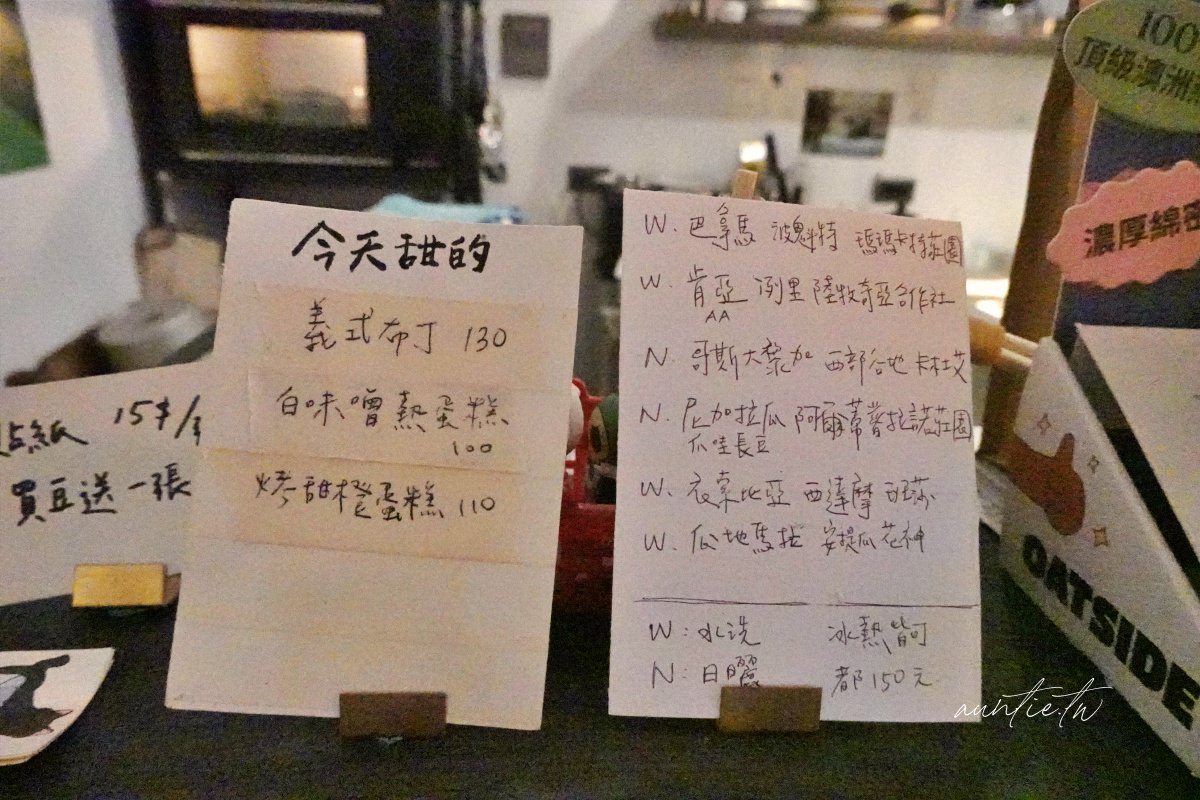 今天甜的
義式布丁 130
白味噌熱蛋糕
100
烤甜橙蛋糕 110
貼紙 15$/
買豆送一張
W. 巴拿馬 波魁特 瑪瑪卡特莊園
W. 肯亞 涅里 陸牧奇亞合作社
AA
N. 哥斯大黎加 西部谷地 卡杜艾
N. 尼加拉瓜 阿爾蒂普拉諾莊園
爪哇長豆
W. 衣索比亞 西達摩 班莎
W. 瓜地馬拉 安提瓜 花神
W:水洗 冰熱皆可
N:日曬 都150元
100
頂級澳洲
濃厚綿密
OATSIDE
auntie.tw